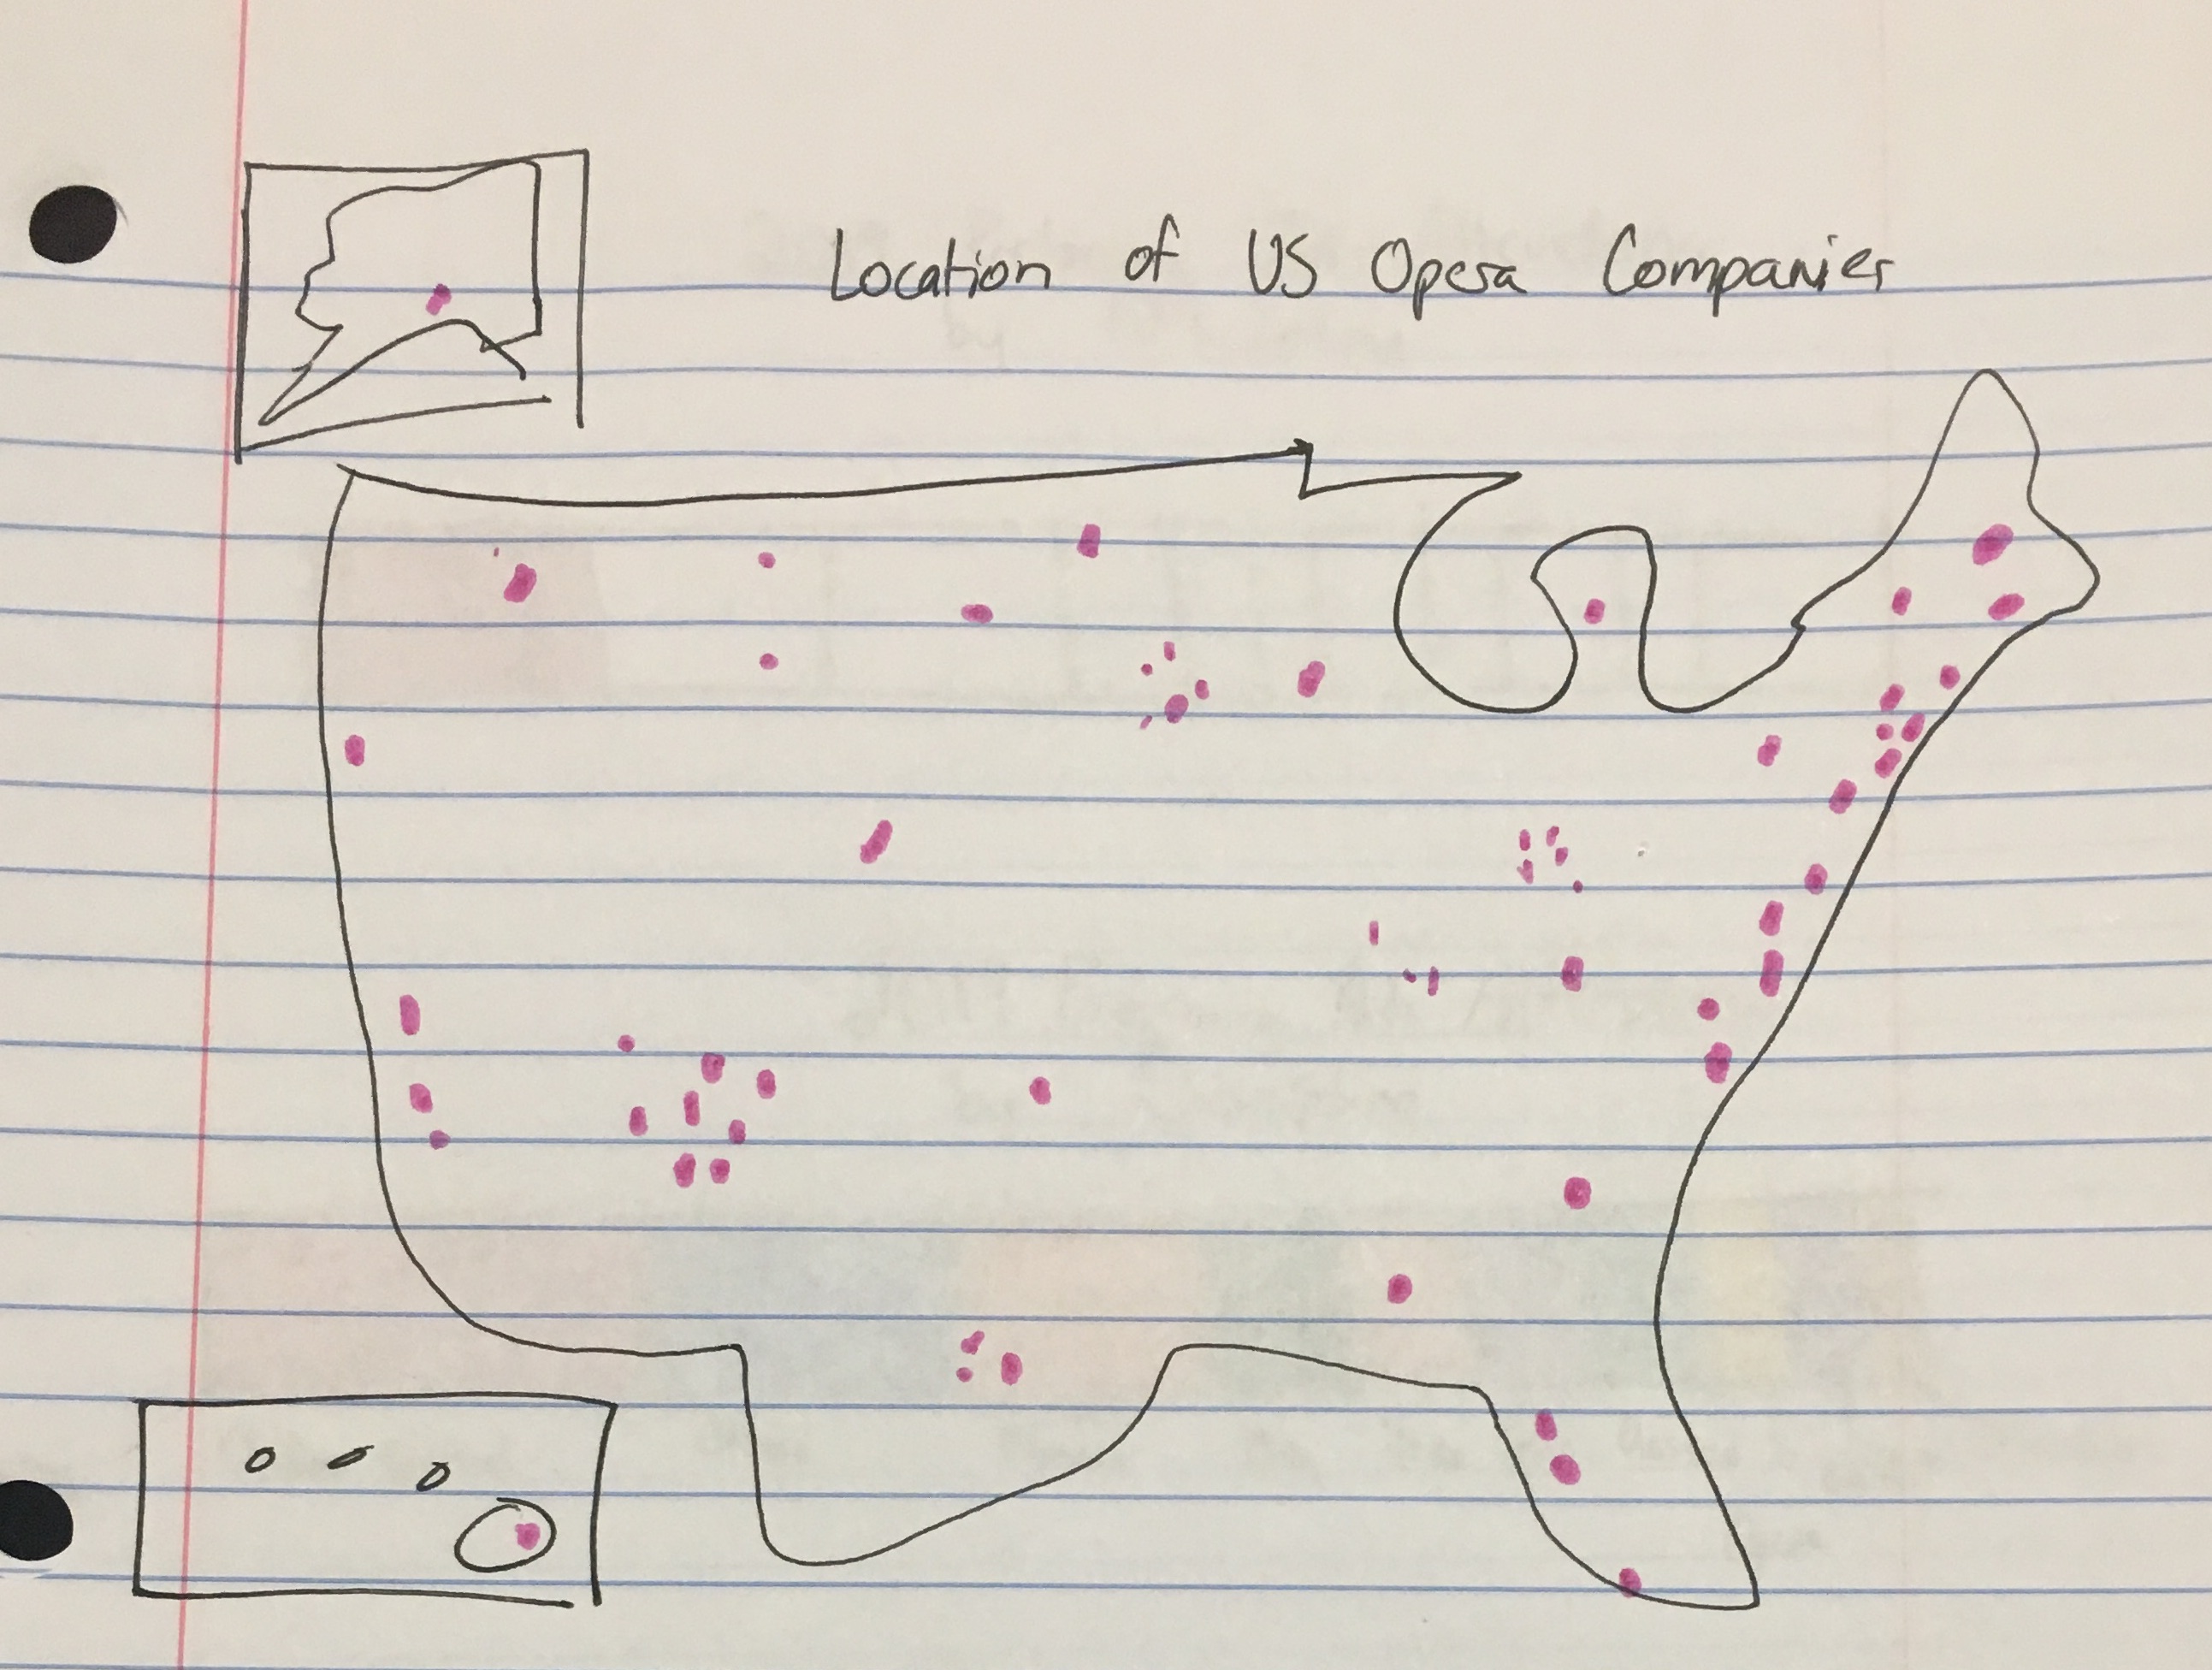 Location of US Opera Companies